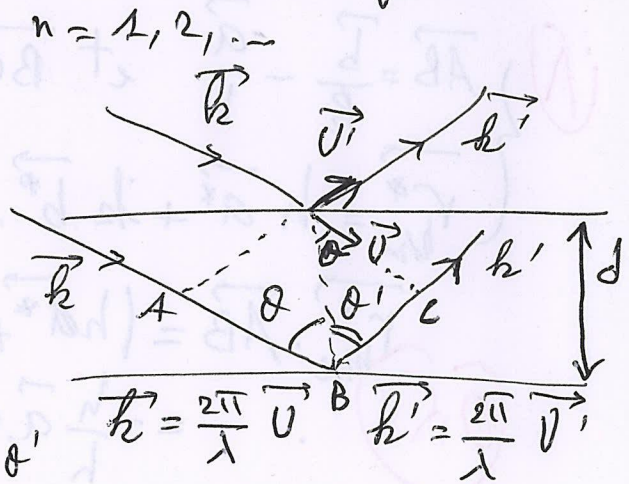 n = 1, 2, ...
k⃗
U⃗'
k⃗'
U⃗
k⃗
A
θ
θ'
C
k'
d
B
k⃗ = 2π/λ U⃗
k⃗' = 2π/λ U⃗'
θ'